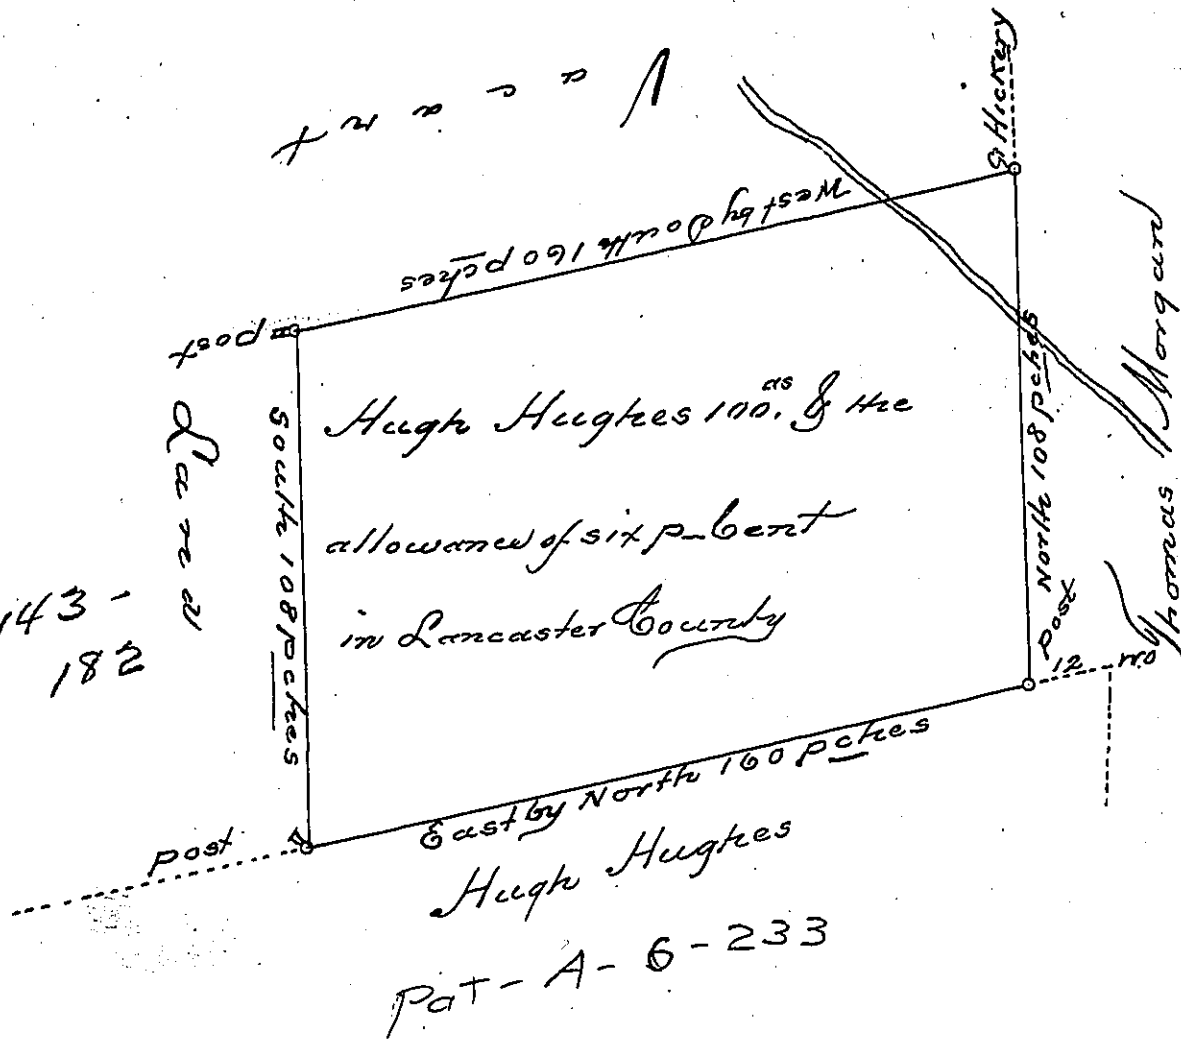 Vacant
G Hickery
West by South 160 pches
post
Land
South 108 pches
Hugh Hughes 100.as & the
allowance of six p Cent
in Lancaster County
North 108 pches
Thomas Morgan
Post
12
143 -
182
post
East by North 160 pches
Hugh Hughes
Pat - A - 6 - 233